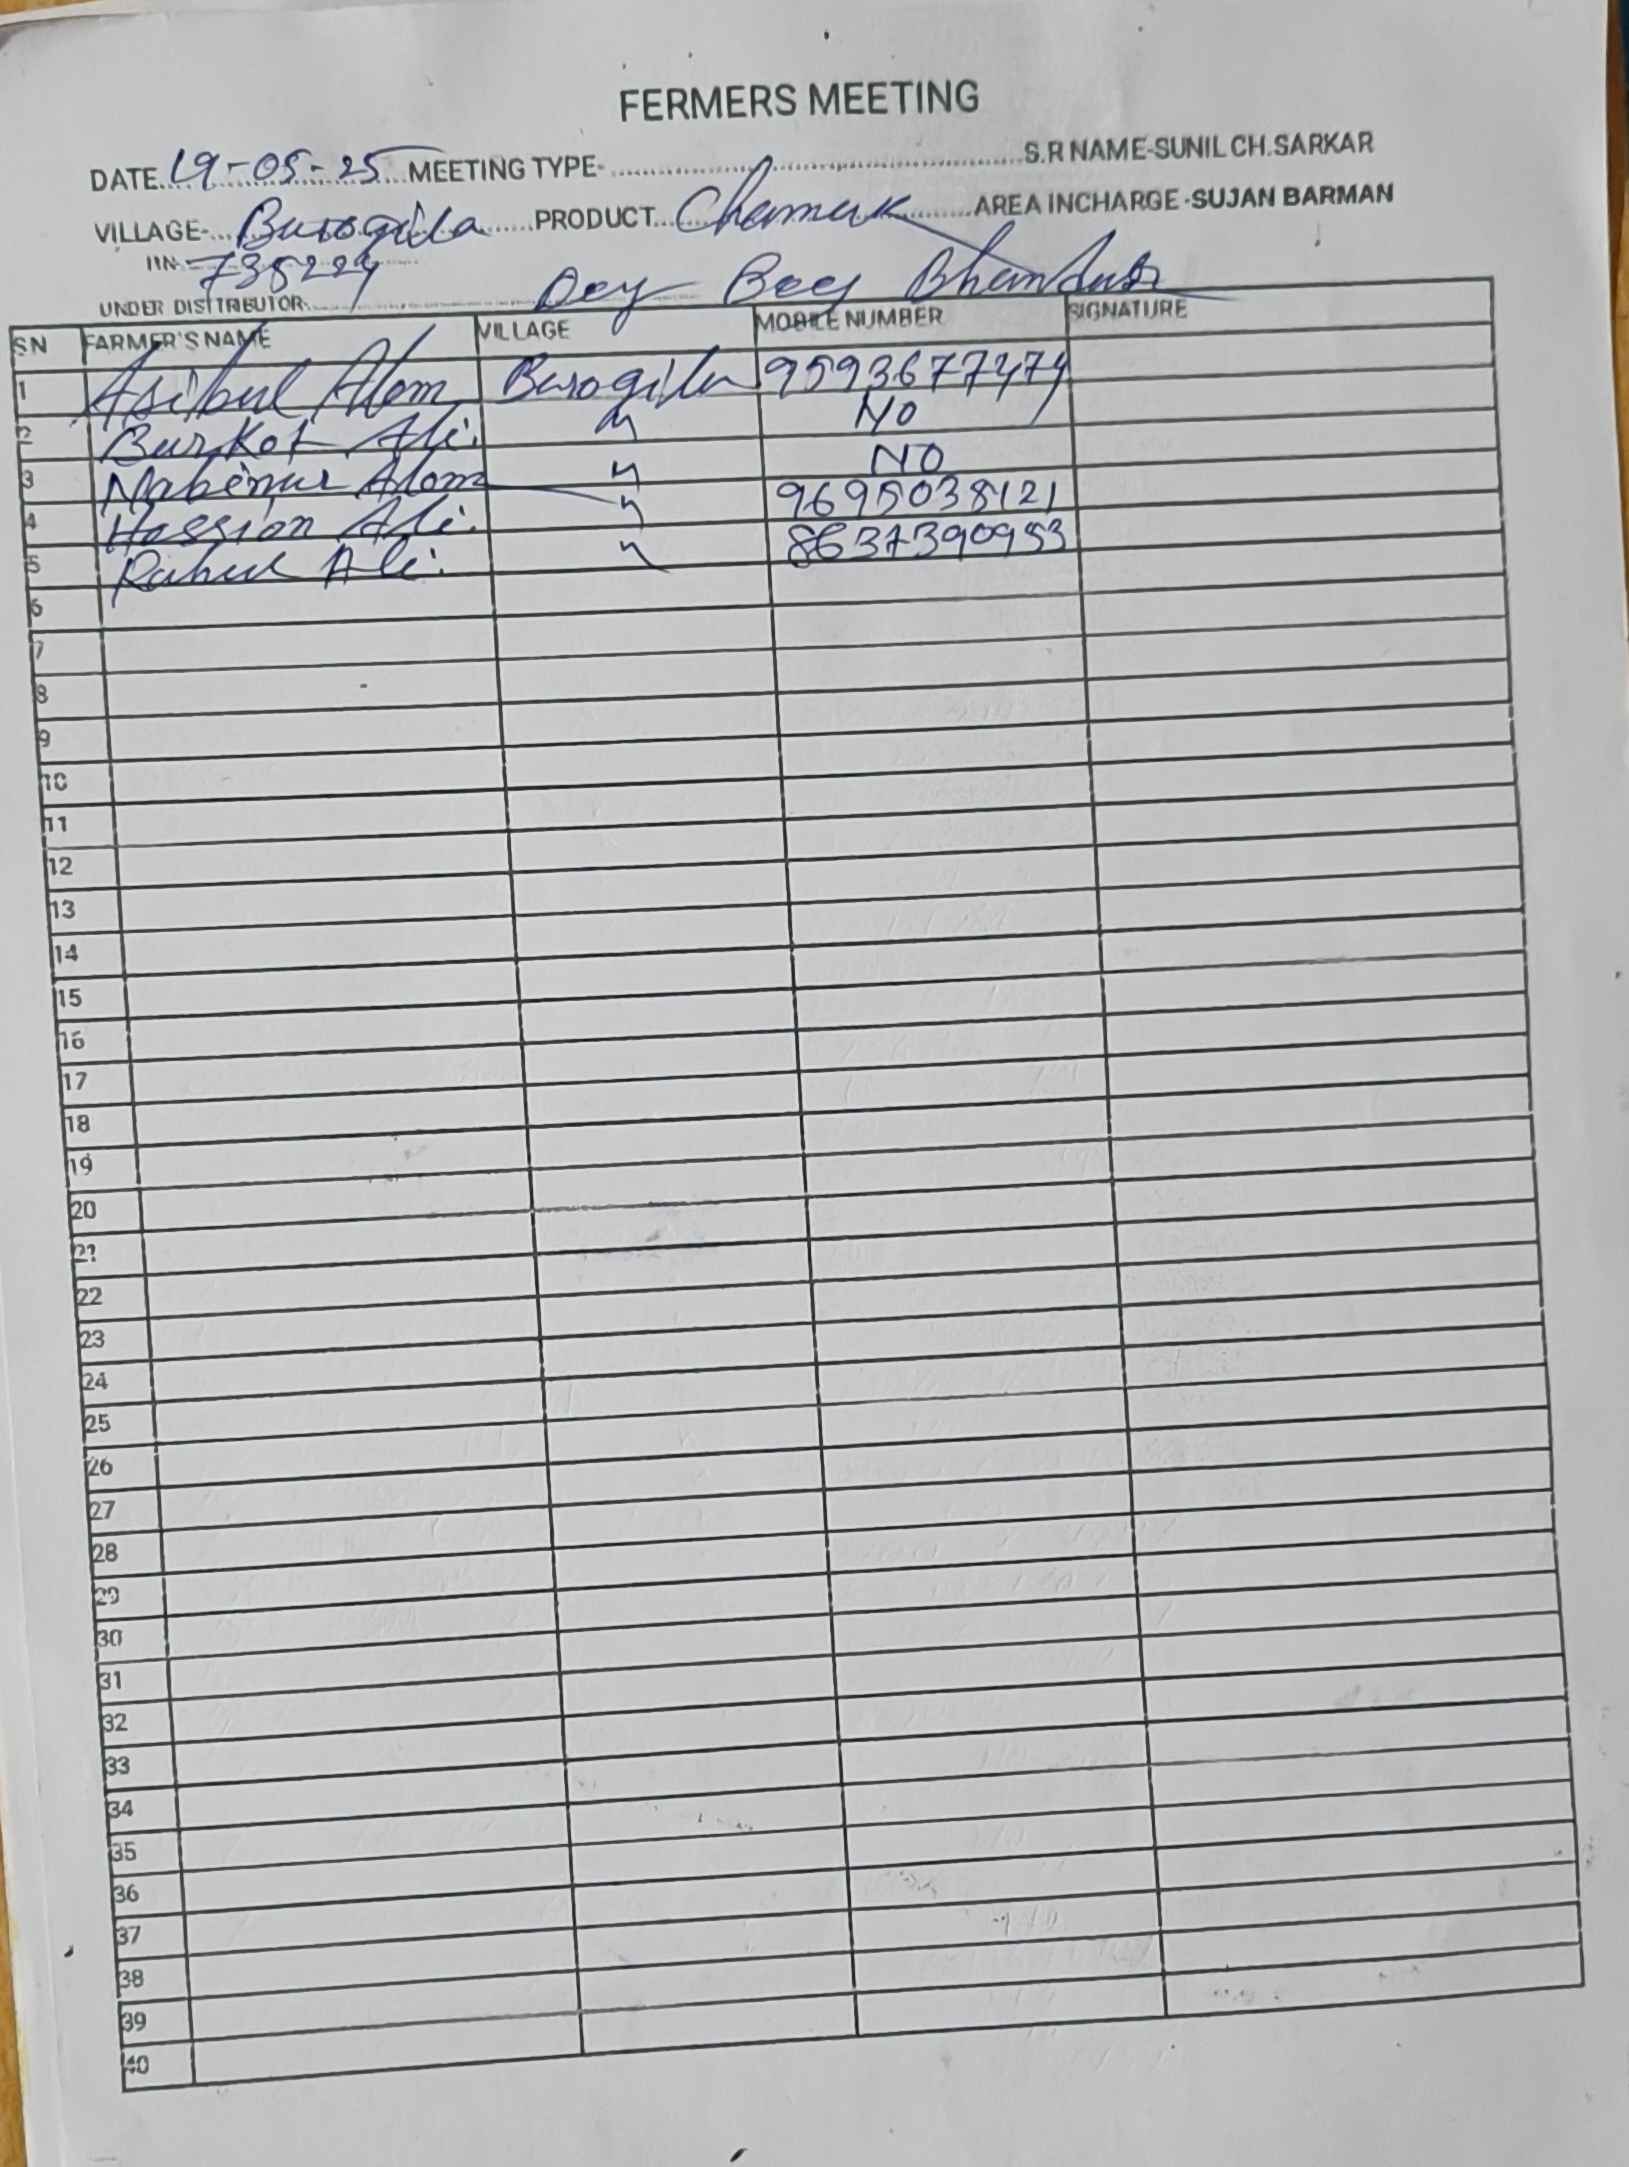 FERMERS MEETING
DATE 19-05-25 MEETING TYPE- S.R NAME-SUNIL CH.SARKAR
VILLAGE- Burogila PRODUCT Chamuk AREA INCHARGE-SUJAN BARMAN
735224
UNDER DISTTRIBUTOR Dey Beej Bhandar
SN FARMER'S NAME VILLAGE MOBILE NUMBER SIGNATURE
1 Asibul Alom Burogila 9593677474
2 Burkot Ali. " NO
3 Nabinur Alom " NO
4 Hossion Ali. " 9695038121
5 Rahul Ali. " 8637390953
6
7
8
9
10
11
12
13
14
15
16
17
18
19
20
21
22
23
24
25
26
27
28
29
30
31
32
33
34
35
36
37
38
39
40